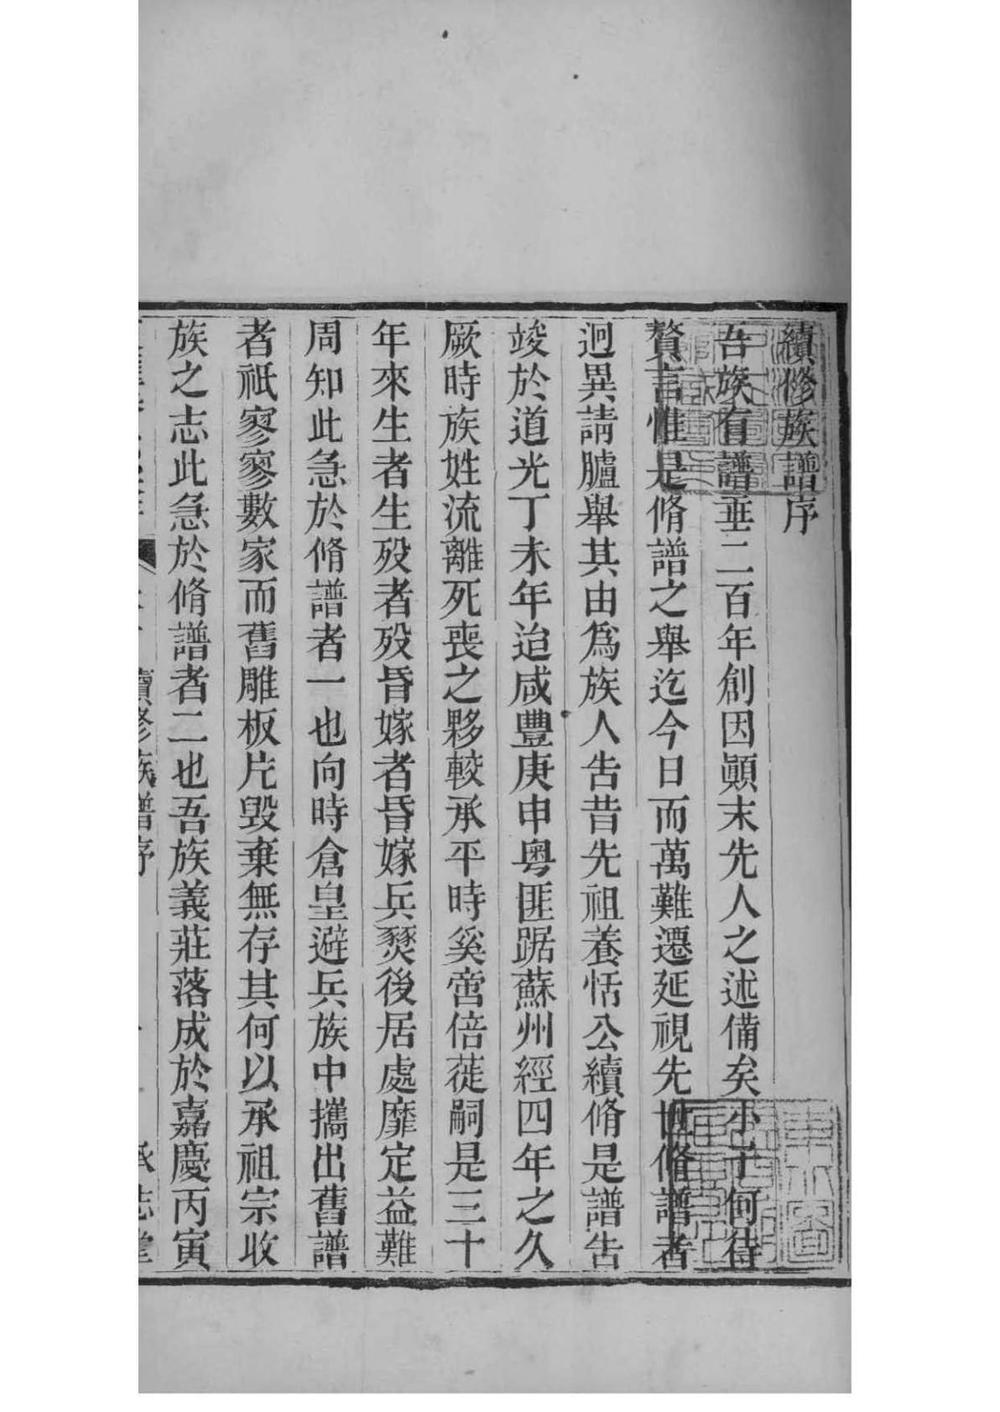 續修族譜序
吾族有譜垂二百年創因顚末先人之述備矣小子何待
贅言惟是脩譜之舉迄今日而萬難遷延視先世脩譜者
迥異請臚舉其由爲族人告昔先祖養恬公續脩是譜告
竣於道光丁未年迨咸豐庚申粤匪踞蘇州經四年之久
厥時族姓流離死喪之夥較承平時奚啻倍蓰嗣是三十
年來生者生殁者殁昏嫁者昏嫁兵燹後居處靡定益難
周知此急於脩譜者一也向時倉皇避兵族中攜出舊譜
者祇寥寥數家而舊雕板片毀棄無存其何以承祖宗收
族之志此急於脩譜者二也吾族義莊落成於嘉慶丙寅
續修族譜序